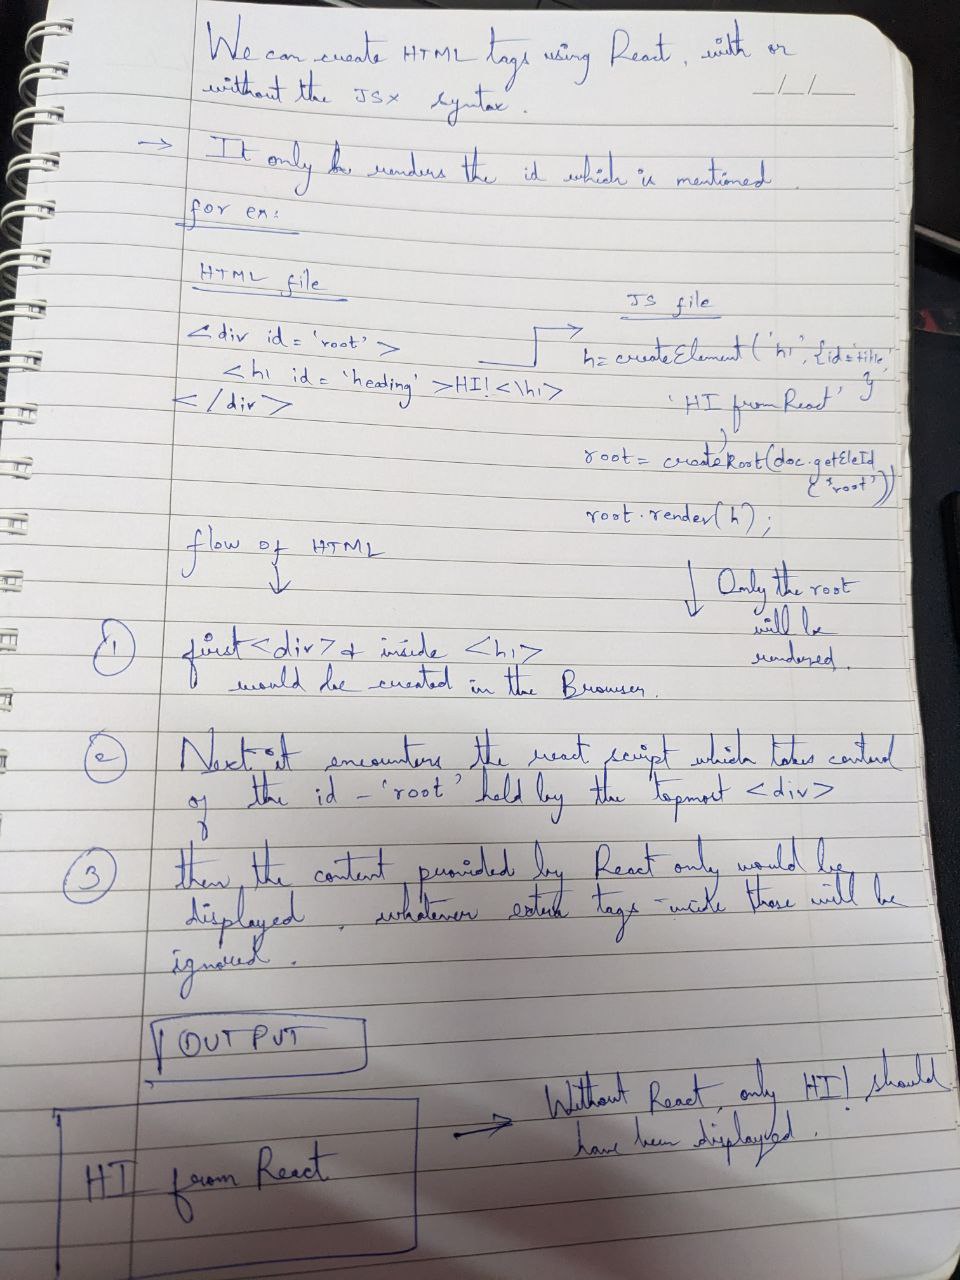 We can create HTML tags using React, with or
without the JSX syntax.
_/_/_
→ It only renders the id which is mentioned.
for ex:
HTML file
<div id = 'root'>
<h1 id = 'heading'>HI!<\h1>
</div>
JS file
h= createElement('h1', {id='title'
}
'HI from React'
)
root = createRoot(doc.getEleId
('root'))
root.render(h);
↓ Only the root
will be
rendered.
flow of HTML
↓
① first <div> & inside <h1>
would be created in the Browser.
② Next it encounters the react script which takes control
of the id - 'root' held by the topmost <div>
③ then the content provided by React only would be
displayed, whatever extra tags inside those will be
ignored.
OUTPUT
HI from React
→ Without React, only HI! should
have been displayed.